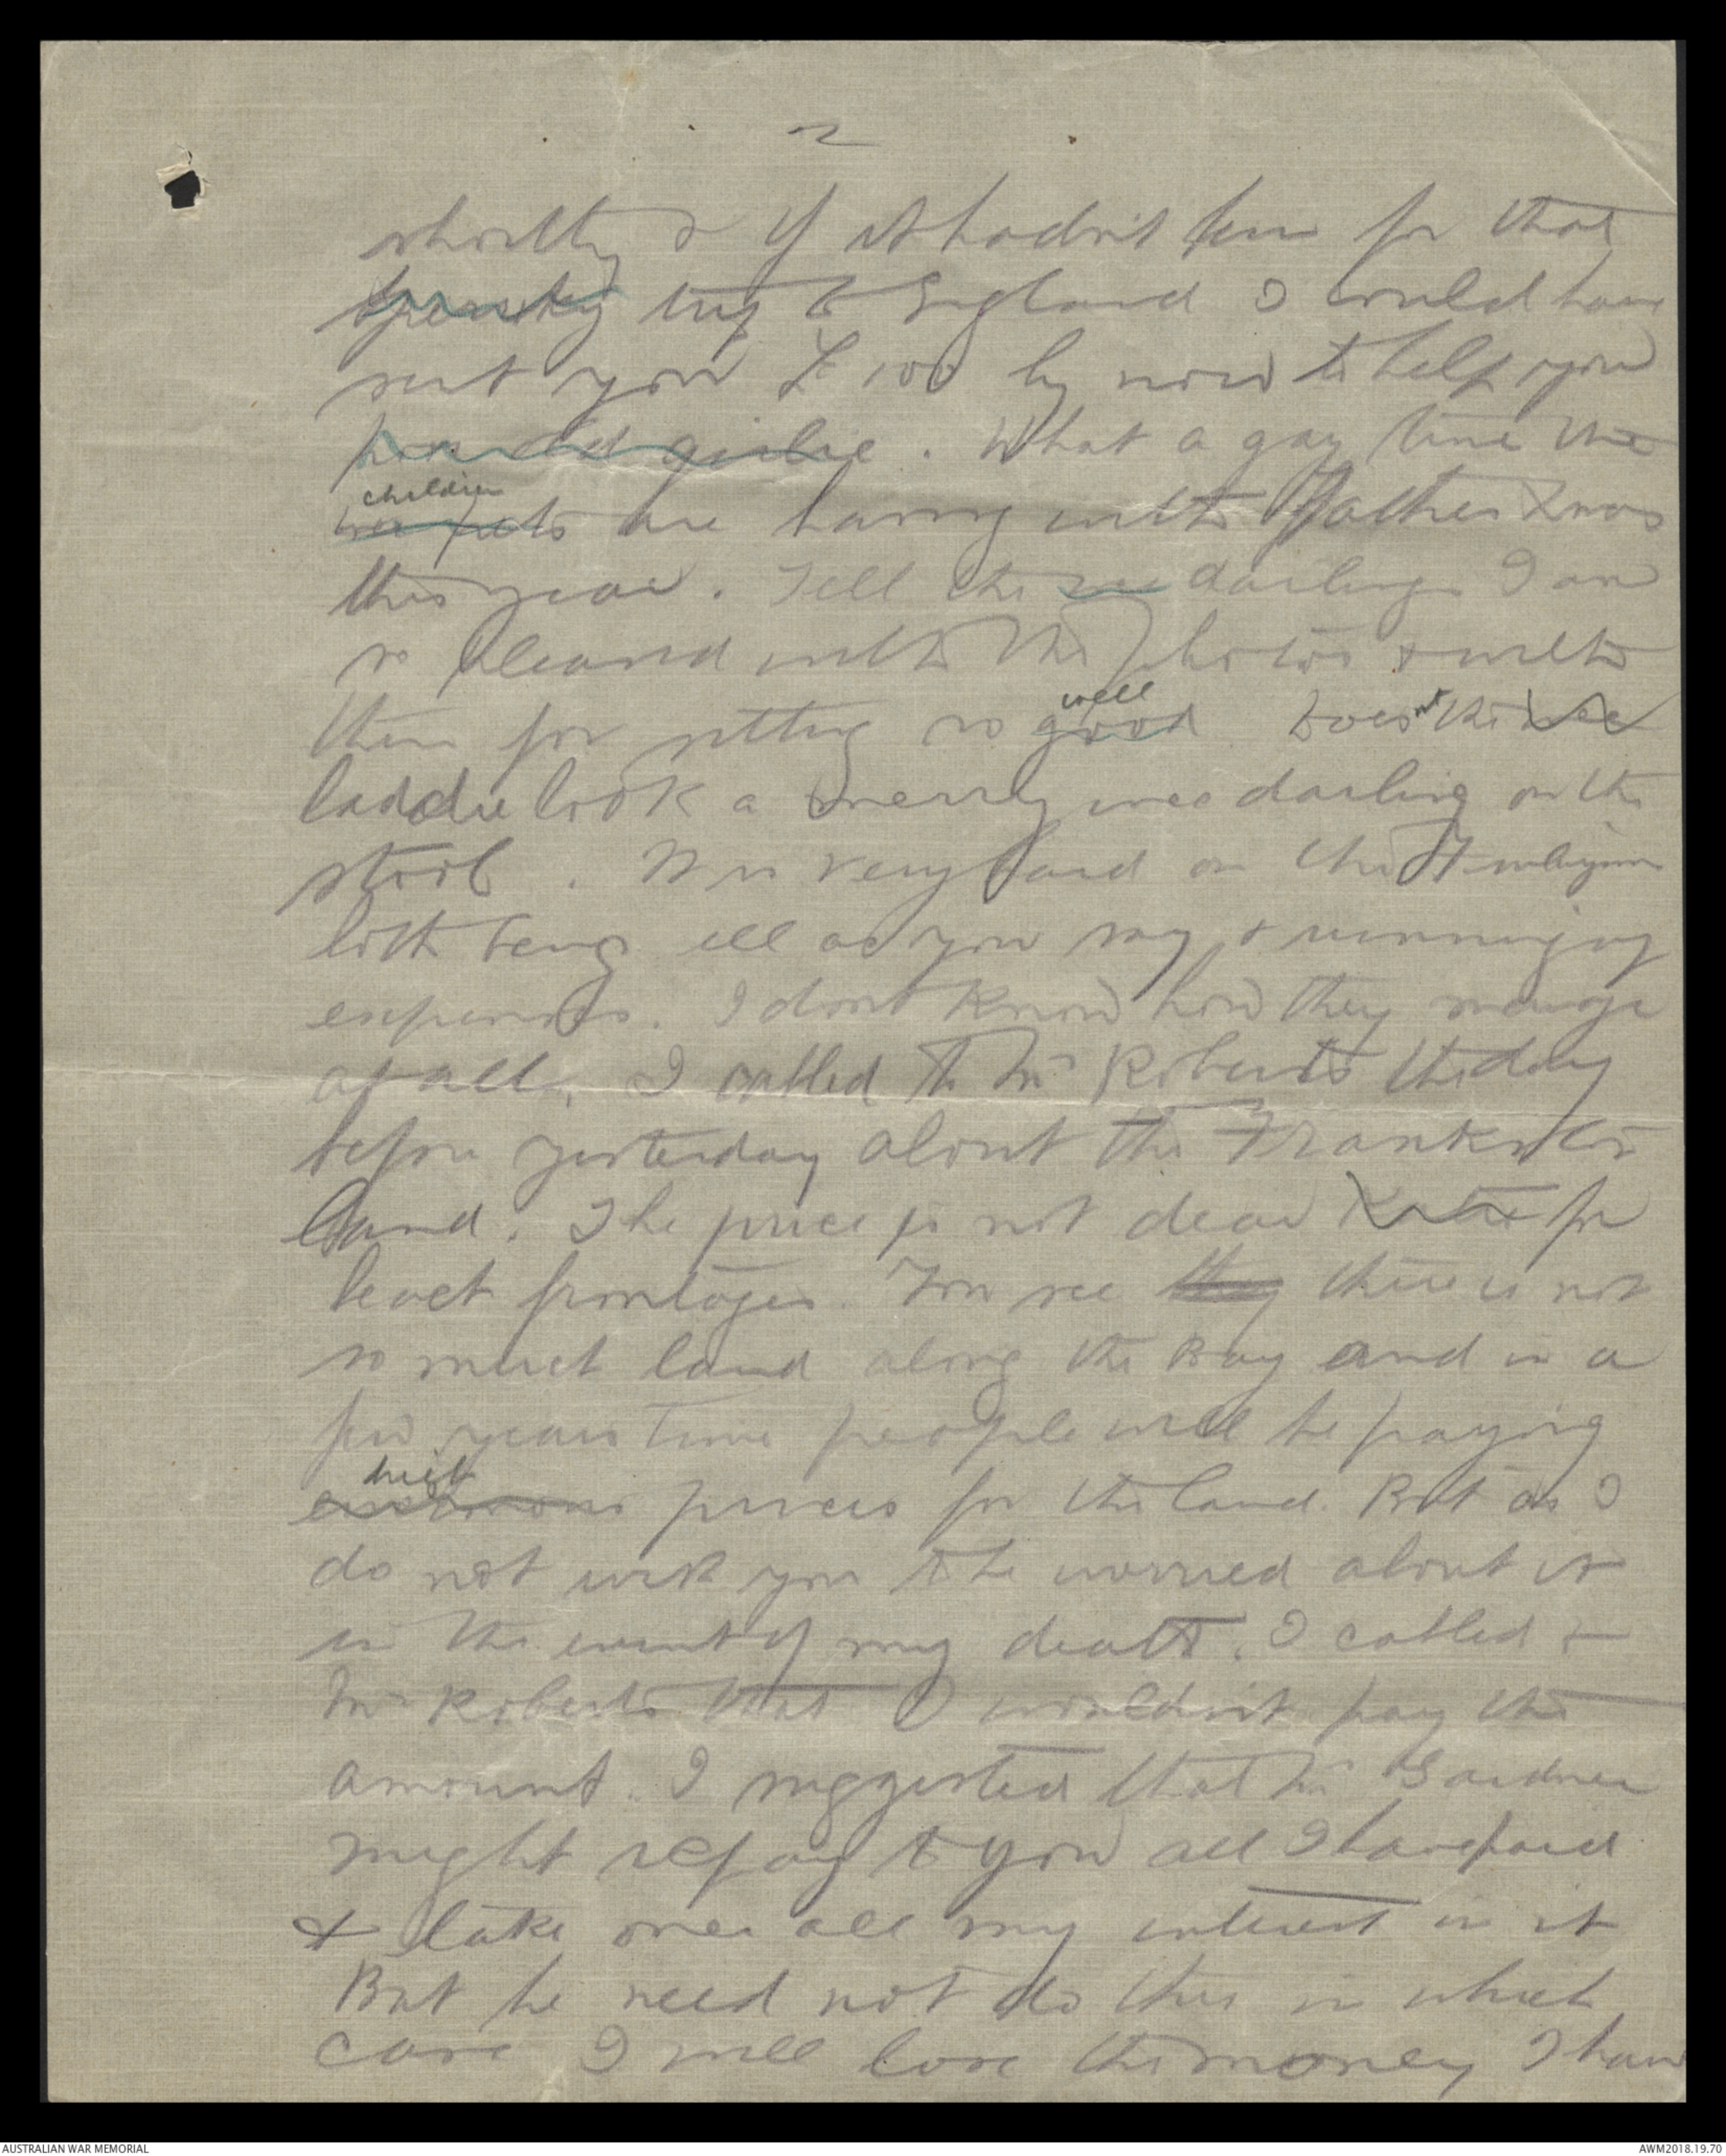 2
shortly & if it hadn't been for that
trip to England I would have
sent you £100 by now to help you
poor old girlie. What a gay time the
children
wee pets are having with Father Xmas
this year. Tell the wee darlings I am
so pleased with the photos & with
well
them for sitting so good. Doesn't the wee
laddie look a merry wee darling on the
stool. It is very hard on the
both being ill as you say & running up
expenses. I dont know how they manage
at all. I cabled to Mr Roberts the day
before yesterday about the Frankston
land. The price is not dear Katie for
beach frontages. You see they there is not
so much land along the Bay and in a
few years time people will be paying
high
enormous prices for the land. But as I
do not wish you to be worried about it
in the event of my death. I cabled to
Mr Roberts that I wouldn't pay the
amount. I suggested that Mr Gardner
might repay to you all I have paid
& take over all my interest in it
But he need not do this in which
case I will lose the money I have
AUSTRALIAN WAR MEMORIAL
AWM2018.19.70